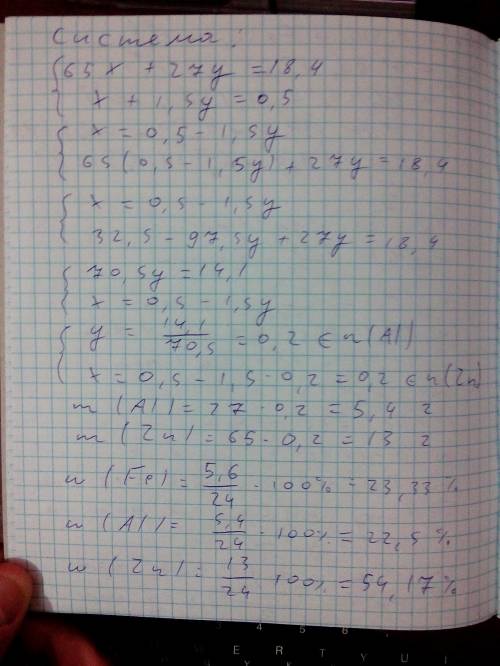 система:
65x + 27y = 18,4
x + 1,5y = 0,5
x = 0,5 - 1,5y
65(0,5 - 1,5y) + 27y = 18,4
x = 0,5 - 1,5y
32,5 - 97,5y + 27y = 18,4
70,5y = 14,1
x = 0,5 - 1,5y
y = 14,1/70,5 = 0,2 ∈ n(Al)
x = 0,5 - 1,5·0,2 = 0,2 ∈ n(Zn)
m(Al) = 27·0,2 = 5,4 г
m(Zn) = 65·0,2 = 13 г
w(Fe) = 5,6/24 · 100% = 23,33%
w(Al) = 5,4/24 · 100% = 22,5%
w(Zn) = 13/24 · 100% = 54,17%
4 5 6
W E R T Y U